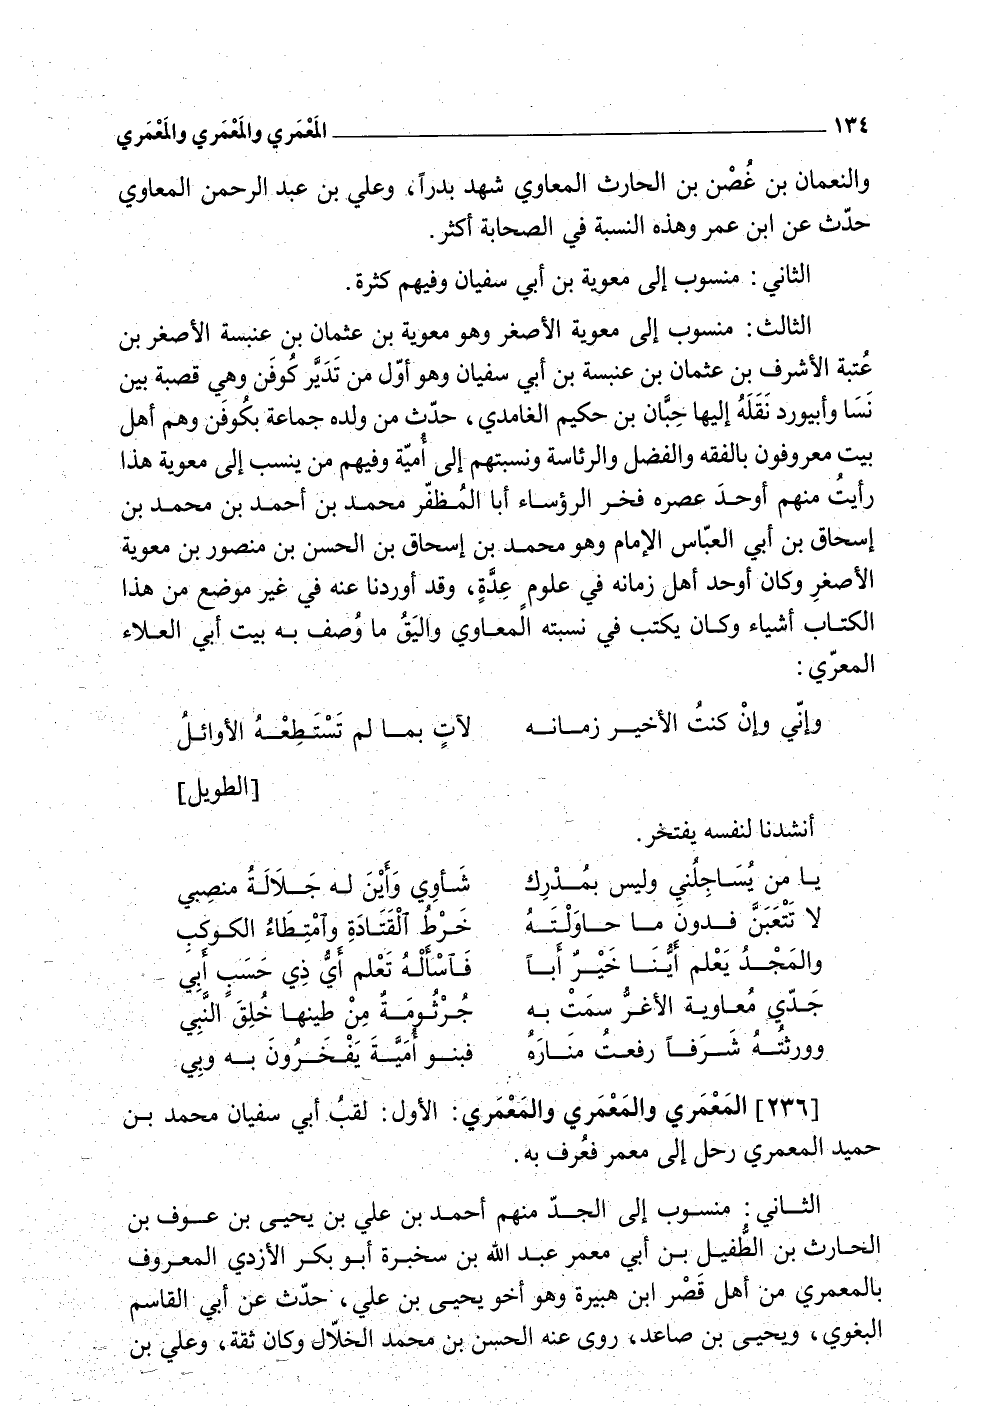 ١٣٤ المَعْمَري والمَعْمَري والمَعْمَري
والنعمان بن غُصْن بن الحارث المعاوي شهد بدراً، وعلي بن عبد الرحمن المعاوي
حدّث عن ابن عمر وهذه النسبة في الصحابة أكثر.
الثاني: منسوب إلى معوية بن أبي سفيان وفيهم كثرة.
الثالث: منسوب إلى معوية الأصغر وهو معوية بن عثمان بن عنبسة الأصغر بن
عُتبة الأشرف بن عثمان بن عنبسة بن أبي سفيان وهو أوّل من تَدَيَّر كُوفَن وهي قصبة بين
نَسَا وأبيورد نَقَلَهُ إليها حِبَّان بن حكيم الغامدي، حدّث من ولده جماعة بكُوفَن وهم أهل
بيت معروفون بالفقه والفضل والرئاسة ونسبتهم إلى أُميّة وفيهم من ينسب إلى معوية هذا
رأيتُ منهم أوحدَ عصره فخر الرؤساء أبا المُظفّر محمد بن أحمد بن محمد بن
إسحاق بن أبي العبّاس الإمام وهو محمد بن إسحاق بن الحسن بن منصور بن معوية
الأصغرِ وكان أوحد أهل زمانه في علوم عِدَّةٍ، وقد أوردنا عنه في غير موضع من هذا
الكتاب أشياء وكان يكتب في نسبته المعاوي واليَقُ ما وُصف به بيت أبي العلاء
المعرّي:
وإنّي وإنْ كنتُ الأخير زمانه لآتٍ بما لم تَسْتَطِعْهُ الأوائلُ
[الطويل]
أنشدنا لنفسه يفتخر.
يا من يُسَاجِلُني وليس بمُدْرِك شَأوِي وَأَيْنَ له جَلَالَةُ منصِبي
لا تَتْعَبَنَّ فدونَ ما حاوَلْتَهُ خَرْطُ ٱلْقَتَادَةِ وٱمْتِطَاءُ الكوكبِ
والمَجْدُ يَعْلم أَيُّنَا خَيْرٌ أباً فَٱسْأَلْهُ تَعْلم أَيُّ ذِي حَسَبٍ أَبِي
جَدّي مُعاوية الأغرُّ سمَتْ به جُرْثُومَةٌ مِنْ طينها خُلِقَ النَّبِي
وورثتُهُ شَرَفاً رفعتُ مَنَارَهُ فبنو أُمَيَّةَ يَفْخَرُونَ به وبِي
[٢٣٦] المَعْمَري والمَعْمَري والمَعْمَري: الأول: لقبُ أبي سفيان محمد بن
حميد المعمري رحل إلى معمر فعُرف به.
الثاني: منسوب إلى الجدّ منهم أحمد بن علي بن يحيى بن عوف بن
الحارث بن الطُّفيل بن أبي معمر عبد الله بن سخبرة أبو بكر الأزدي المعروف
بالمعمري من أهل قَصْر ابن هبيرة وهو أخو يحيى بن علي، حدّث عن أبي القاسم
البغوي، ويحيى بن صاعد، روى عنه الحسن بن محمد الخلّال وكان ثقة، وعلي بن